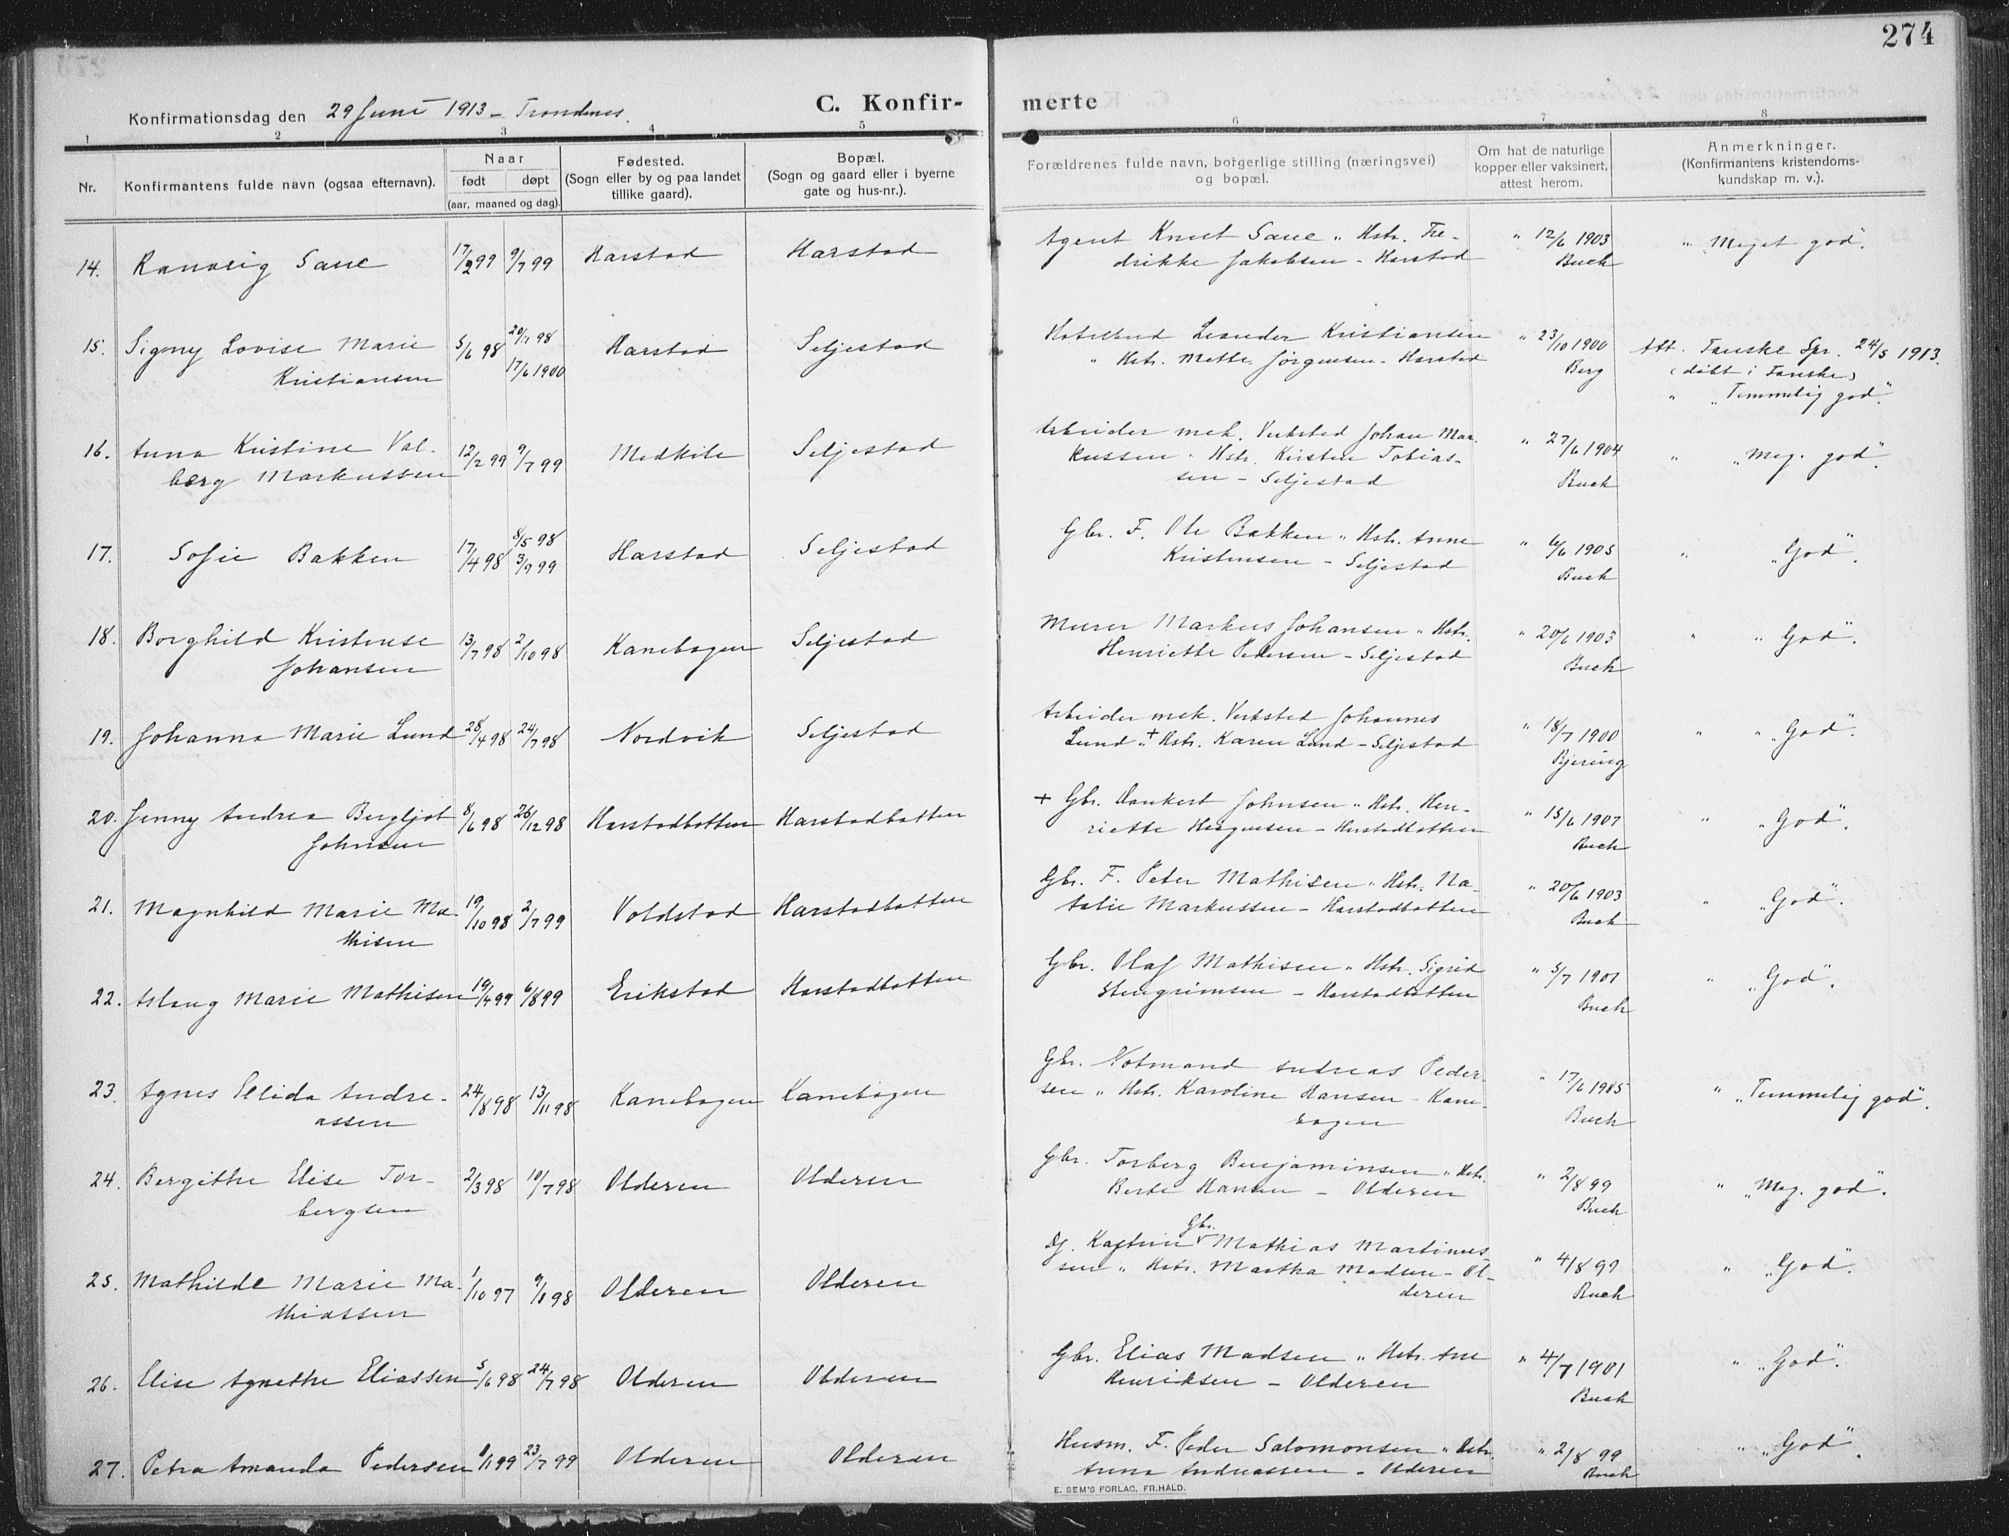 274
Konfirmationsdag den 29 Juni 1913 – Trondenes.
C. Konfir-
merte
1 2 3 4 5 6 7 8
Nr.
Konfirmantens fulde navn (ogsaa efternavn).
Naar
født døpt
(aar, maaned og dag)
Fødested.
(Sogn eller by og paa landet
tillike gaard).
Bopæl.
(Sogn og gaard eller i byerne
gate og hus-nr.).
Forældrenes fulde navn, borgerlige stilling (næringsvei)
og bopæl.
Om hat de naturlige
kopper eller vaksinert,
attest herom.
Anmerkninger.
(Konfirmantens kristendoms-
kundskap m. v.).
14. Ranveig Saue 17/2 99 9/7 99 Harstad Harstad
Agent Knut Saue „ Hstr. Fre-
drikke Jakobsen – Harstad
„ 12/6 1903
Buch
„ „Meget god“.
15. Signy Lovise Marie
Kristiansen
5/6 98 20/7 98
17/6 1900
Harstad Seljestad
Leander Kristiansen
„ Hstr. Mette Jørgensen – Harstad
„ 23/10 1900
Berg
Att. Fauske Spr. 24/5 1913.
(døbt i Fauske)
„ „Temmelig god“.
16. Anna Kristine Val-
berg Markussen
12/2 99 9/7 99 Medkile Seljestad
Arbeider mek. Verksted Johan Mar-
kussen „ Hstr. Kirsten Tobias-
sen – Seljestad
„ 27/6 1904
Buch
„ „Meg. god“.
17. Sofie Bakken 17/4 98 8/5 98
3/9 99
Harstad Seljestad
Gbr. F. Ole Bakken „ Hstr. Anne
Kristensen – Seljestad
„ 6/6 1905
Buch
„ „God“.
18. Borghild Kristense
Johansen
13/7 98 2/10 98 Kanebogen Seljestad
Murer Markus Johansen „ Hstr.
Henriette Pedersen – Seljestad
„ 20/6 1903
Buch
„ „God“.
19. Johanna Marie Lund 28/4 98 24/7 98 Nordvik Seljestad
Arbeider mek. Verksted Johannes
Lund „ + Hstr. Karen Lund – Seljestad
„ 18/7 1900
Bjering
„ „God“.
20. Jenny Andrea Bergljot
Johnsen
8/6 98 26/12 98 Harstadbotten Harstadbotten
+ Gbr. Johnsen „ Hstr. Hen-
riette – Harstadbotten
„ 15/6 1907
Buch
„ „God“.
21. Magnhild Marie Ma-
thisen
19/10 98 2/7 99 Voldstad Harstadbotten
Gbr. F. Peter Mathisen „ Hstr. Na-
talie Markussen – Harstadbotten
„ 20/6 1903
Buch
„ „God“.
22. Aslaug Marie Mathisen 19/4 99 6/8 99 Erikstad Harstadbotten
Gbr. Olaf Mathisen „ Hstr. Sigrid
Stengrimsen – Harstadbotten
„ 5/7 1901
Buch
„ „God“.
23. Agnes Elida Andre-
assen
24/8 98 13/11 98 Kanebogen Kanebogen
Gbr. Notmand Andreas Peder-
sen „ Hstr. Karoline Hansen – Kane-
bogen
„ 17/6 1905
Buch
„ „Temmelig god“.
24. Bergithe Elise Tor-
bergsen
2/3 98 10/7 98 Olderen Olderen
Gbr. Torberg Benjaminsen „ Hstr.
Berte Hansen – Olderen
„ 2/8 99
Buch
„ „Meg. god“.
25. Mathilde Marie Ma-
thiassen
1/10 97 9/1 98 Olderen Olderen
Gbr.
Mathias Martinus-
sen „ Hstr. Martha Madsen – Ol-
deren
„ 4/8 99
Buch
„ „God“.
26. Elise Agnethe Eliassen 5/6 98 24/7 98 Olderen Olderen
Gbr. Elias Madsen „ Hstr. Ane
Henriksen – Olderen
„ 4/7 1901
Buch
„ „God“.
27. Petra Amanda Pedersen 1/1 99 23/7 99 Olderen Olderen
Husm. F. Peder Salomonsen „ Hstr.
Anna Andreassen – Olderen
„ 2/8 99
Buch
„ „God“.
E. SEM'S FORLAG, FR.HALD.